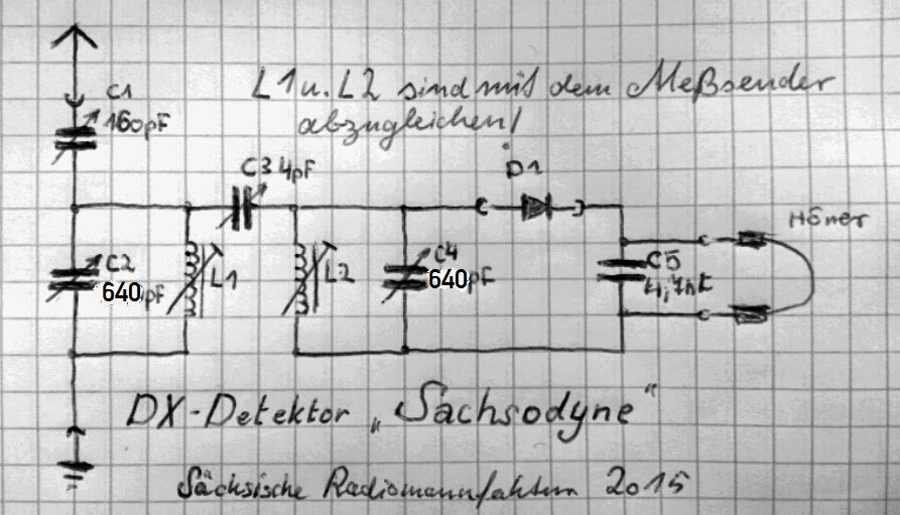 L1 u. L2 sind mit dem Meßsender
abzugleichen!
C1
160pF
C3 4pF
D1
Hörer
C2
640pF
L1
L2
C4
640pF
C5
4,7nF
DX-Detektor „Sachsodyne“
Sächsische Radiomanufaktur 2015